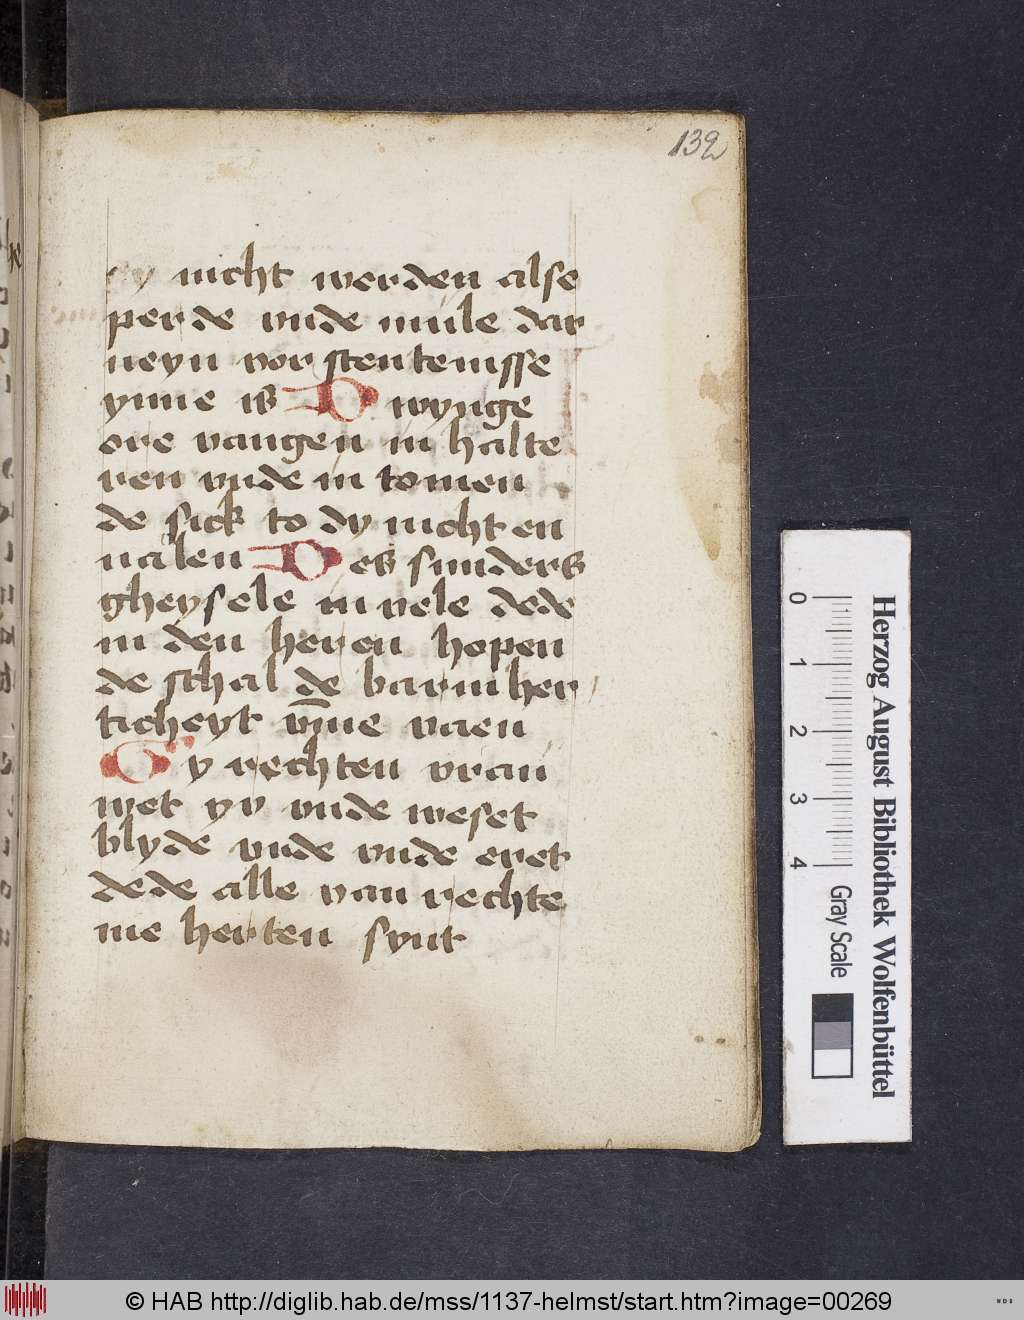 132
gy nicht werden alse
perde vnde mule dar
neyn vorstentenisse
ynne is Dwynge
ore wangen in halte
ren vnde in tomen
de sick to dy nicht en
nalen Des sunders
gheysele in vele dede
in den heren hopen
de schal de barmher
ticheyt v̄me vaen
Gy rechten vrau
wet yv vnde weset
blyde vnde vnde eret
dede alle van rechte
me herten synt
Herzog August Bibliothek Wolfenbüttel
0 1 2 3 4 Gray Scale
© HAB http://diglib.hab.de/mss/1137-helmst/start.htm?image=00269